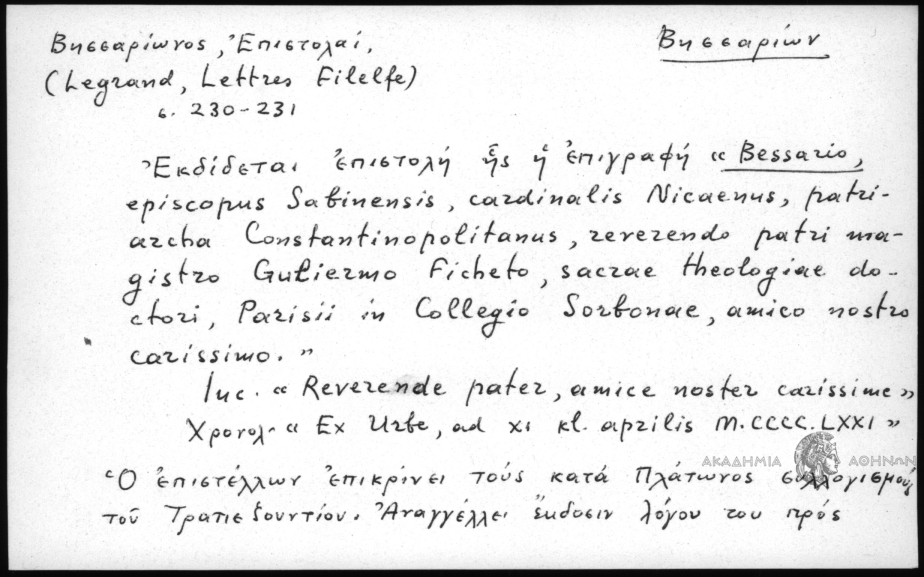 Βησσαρίων
Βησσαρίωνος, Ἐπιστολαί,
(Legrand, Lettres Filelfe)
σ. 230-231
Ἐκδίδεται ἐπιστολή ἧς ἡ ἐπιγραφή « Bessario,
episcopus Sabinensis, cardinalis Nicaenus, patri-
archa Constantinopolitanus, reverendo patri ma-
gistro Guliermo Ficheto, sacrae theologiae do-
ctori, Parisii in Collegio Sorbonae, amico nostro
carissimo. »
Inc. « Reverende pater, amice noster carissime »
Χρονολ. « Ex Urbe, ad xi kl. aprilis M.CCCC.LXXI »
ΑΚΑΔΗΜΙΑ ΑΘΗΝΩΝ
Ὁ ἐπιστέλλων ἐπικρίνει τούς κατά Πλάτωνος συλλογισμούς
τοῦ Τραπεζουντίου. Ἀναγγέλλει ἔκδοσιν λόγου του πρός